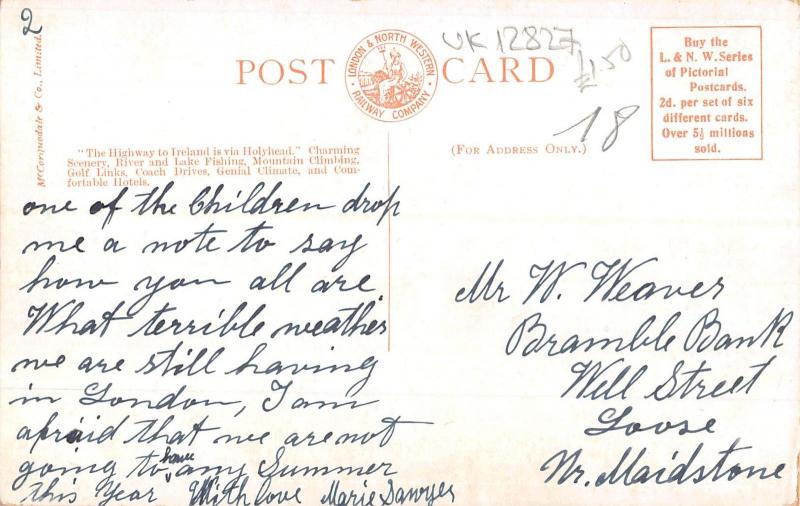 2
UK 12827
£1.50
18
McCorquodale & Co., Limited.
POST CARD
LONDON & NORTH WESTERN RAILWAY COMPANY
Buy the
L. & N. W. Series
of Pictorial
Postcards.
2d. per set of six
different cards.
Over 5½ millions
sold.
"The Highway to Ireland is via Holyhead." Charming
Scenery, River and Lake Fishing, Mountain Climbing,
Golf Links, Coach Drives, Genial Climate, and Com-
fortable Hotels.
(FOR ADDRESS ONLY.)
one of the Children drop
me a note to say
how you all are
What terrible weather
we are still having
in London, I am
afraid that we are not
going to have any Summer
this Year With love Marie Sawyer
Mr W. Weaver
Bramble Bank
Well Street
Loose
Nr. Maidstone